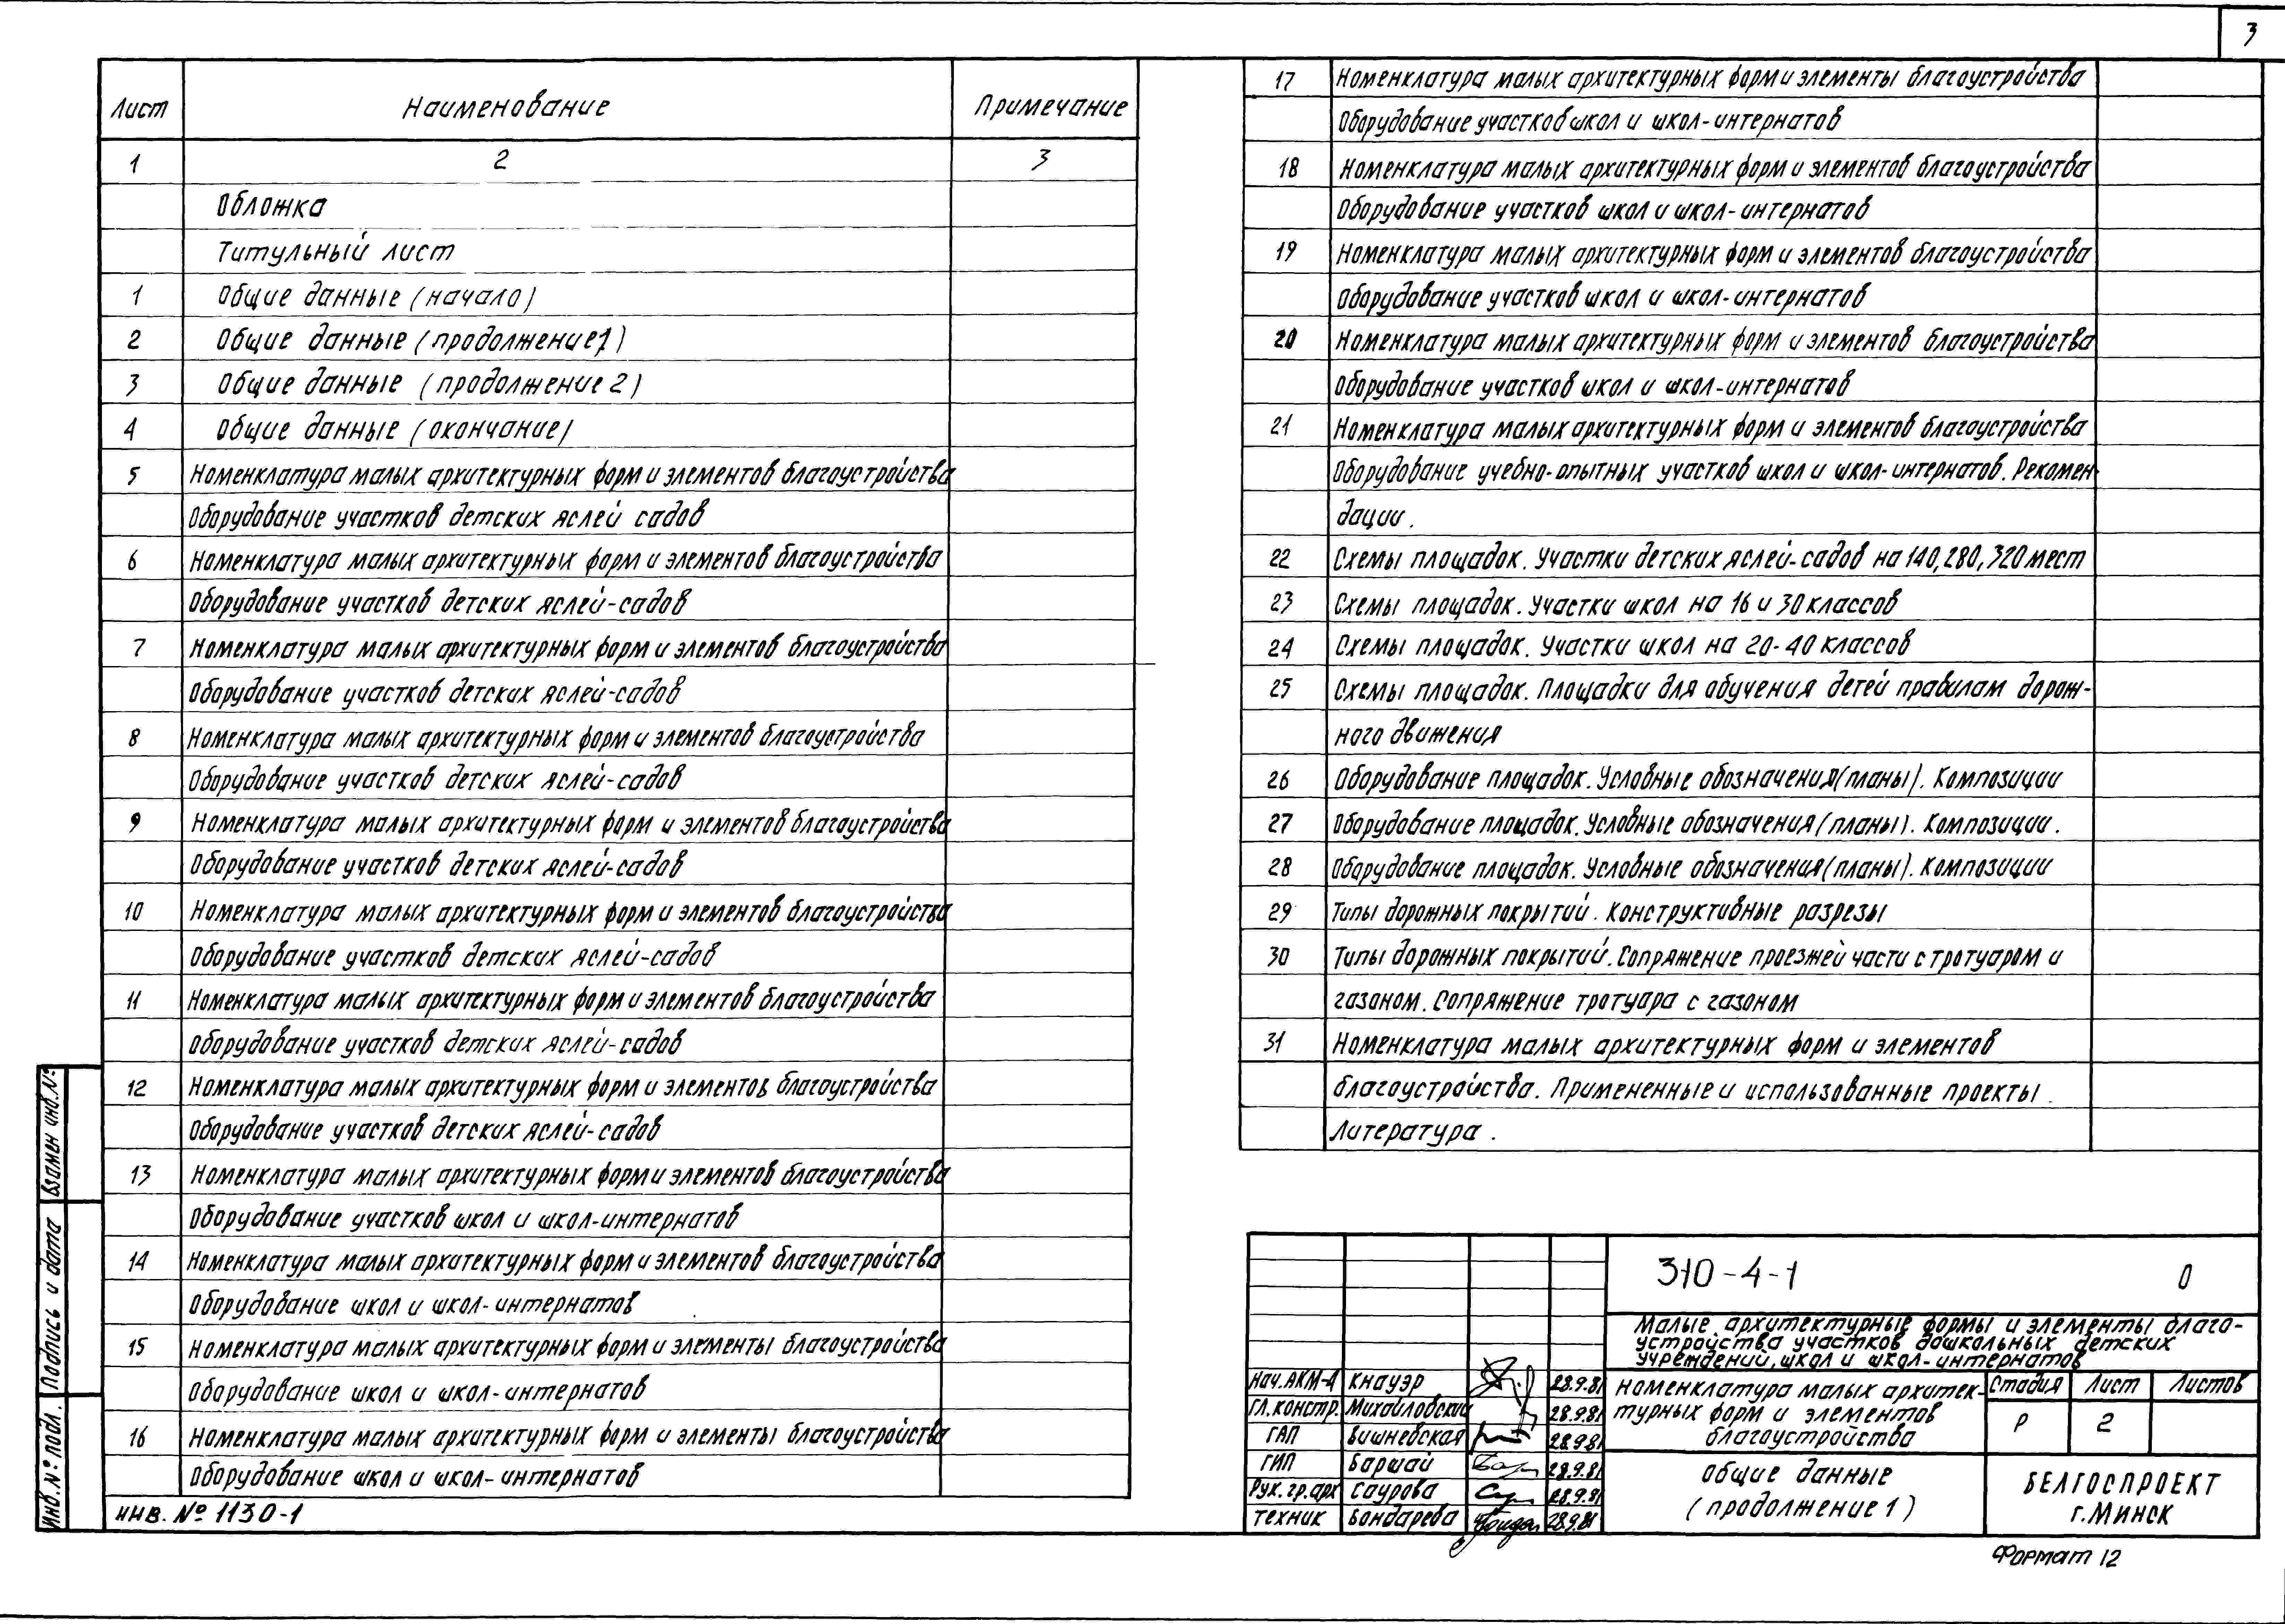 3
Лист Наименование Примечание
1 2 3
Обложка
Титульный лист
1 Общие данные (начало)
2 Общие данные (продолжение 1)
3 Общие данные (продолжение 2)
4 Общие данные (окончание)
5 Номенклатура малых архитектурных форм и элементов благоустройства
Оборудование участков детских яслей садов
6 Номенклатура малых архитектурных форм и элементов благоустройства
Оборудование участков детских яслей-садов
7 Номенклатура малых архитектурных форм и элементов благоустройства
Оборудование участков детских яслей-садов
8 Номенклатура малых архитектурных форм и элементов благоустройства
Оборудование участков детских яслей-садов
9 Номенклатура малых архитектурных форм и элементов благоустройства
Оборудование участков детских яслей-садов
10 Номенклатура малых архитектурных форм и элементов благоустройства
Оборудование участков детских яслей-садов
11 Номенклатура малых архитектурных форм и элементов благоустройства
Оборудование участков детских яслей-садов
12 Номенклатура малых архитектурных форм и элементов благоустройства
Оборудование участков детских яслей-садов
13 Номенклатура малых архитектурных форм и элементов благоустройства
Оборудование участков школ и школ-интернатов
14 Номенклатура малых архитектурных форм и элементов благоустройства
Оборудование школ и школ-интернатов
15 Номенклатура малых архитектурных форм и элементы благоустройства
Оборудование школ и школ-интернатов
16 Номенклатура малых архитектурных форм и элементы благоустройства
Оборудование школ и школ-интернатов
инв. № 1130-1
Взамен инв.№
Подпись и дата
Инв.№ подл.
17 Номенклатура малых архитектурных форм и элементы благоустройства
Оборудование участков школ и школ-интернатов
18 Номенклатура малых архитектурных форм и элементов благоустройства
Оборудование участков школ и школ-интернатов
19 Номенклатура малых архитектурных форм и элементов благоустройства
Оборудование участков школ и школ-интернатов
20 Номенклатура малых архитектурных форм и элементов благоустройства
Оборудование участков школ и школ-интернатов
21 Номенклатура малых архитектурных форм и элементов благоустройства
Оборудование учебно-опытных участков школ и школ-интернатов. Рекомен-
дации.
22 Схемы площадок. Участки детских яслей-садов на 140, 280, 320 мест
23 Схемы площадок. Участки школ на 16 и 30 классов
24 Схемы площадок. Участки школ на 20-40 классов
25 Схемы площадок. Площадки для обучения детей правилам дорож-
ного движения
26 Оборудование площадок. Условные обозначения (планы). Композиции
27 Оборудование площадок. Условные обозначения (планы). Композиции.
28 Оборудование площадок. Условные обозначения (планы). Композиции
29 Типы дорожных покрытий. Конструктивные разрезы
30 Типы дорожных покрытий. Сопряжение проезжей части с тротуаром и
газоном. Сопряжение тротуара с газоном
31 Номенклатура малых архитектурных форм и элементов
благоустройства. Примененные и использованные проекты.
Литература.
310-4-1 0
Малые архитектурные формы и элементы благо-
устройства участков дошкольных детских
учреждений, школ и школ-интернатов
Нач.АКМ-4 Кнауэр 28.9.81
Гл.констр. Михайловский 28.9.81
ГАП Вишневская 28.9.81
ГИП Баршай 28.9.81
Рук.гр.арх Саурова 28.9.81
Техник Бондарева 28.9.81
Номенклатура малых архитек-
турных форм и элементов
благоустройства
Стадия Лист Листов
Р 2
Общие данные
(продолжение 1)
БЕЛГОСПРОЕКТ
г.Минск
Формат 12